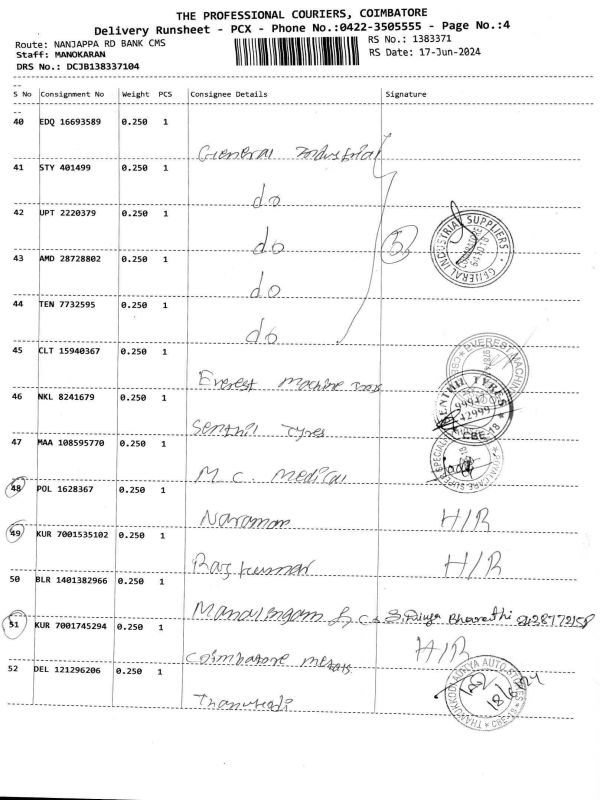 THE PROFESSIONAL COURIERS, COIMBATORE
Delivery Runsheet - PCX - Phone No.:0422-3505555 - Page No.:4
Route: NANJAPPA RD BANK CMS
RS No.: 1383371
Staff: MANOKARAN
RS Date: 17-Jun-2024
DRS No.: DCJB138337104
S No Consignment No Weight PCS Consignee Details Signature
40 EDQ 16693589 0.250 1
General Industrial
41 STY 401499 0.250 1
do
42 UPT 2220379 0.250 1
do
5
GENERAL INDUSTRIAL SUPPLIERS
43 AMD 28728802 0.250 1
do
44 TEN 7732595 0.250 1
do
45 CLT 15940367 0.250 1
Everest Machine
EVEREST MACHINE
46 NKL 8241679 0.250 1
Senthil Tyres
SENTHIL TYRES
99947
42999
CBE-18
47 MAA 108595770 0.250 1
M.C. Medical
48 POL 1628367 0.250 1
H/R
49 KUR 7001535102 0.250 1
Rajkumar H/R
50 BLR 1401382966 0.250 1
Bharathi
51 KUR 7001745294 0.250 1
H/R
Coimbatore metals
52 DEL 121296206 0.250 1
18/6/24
CBE-18